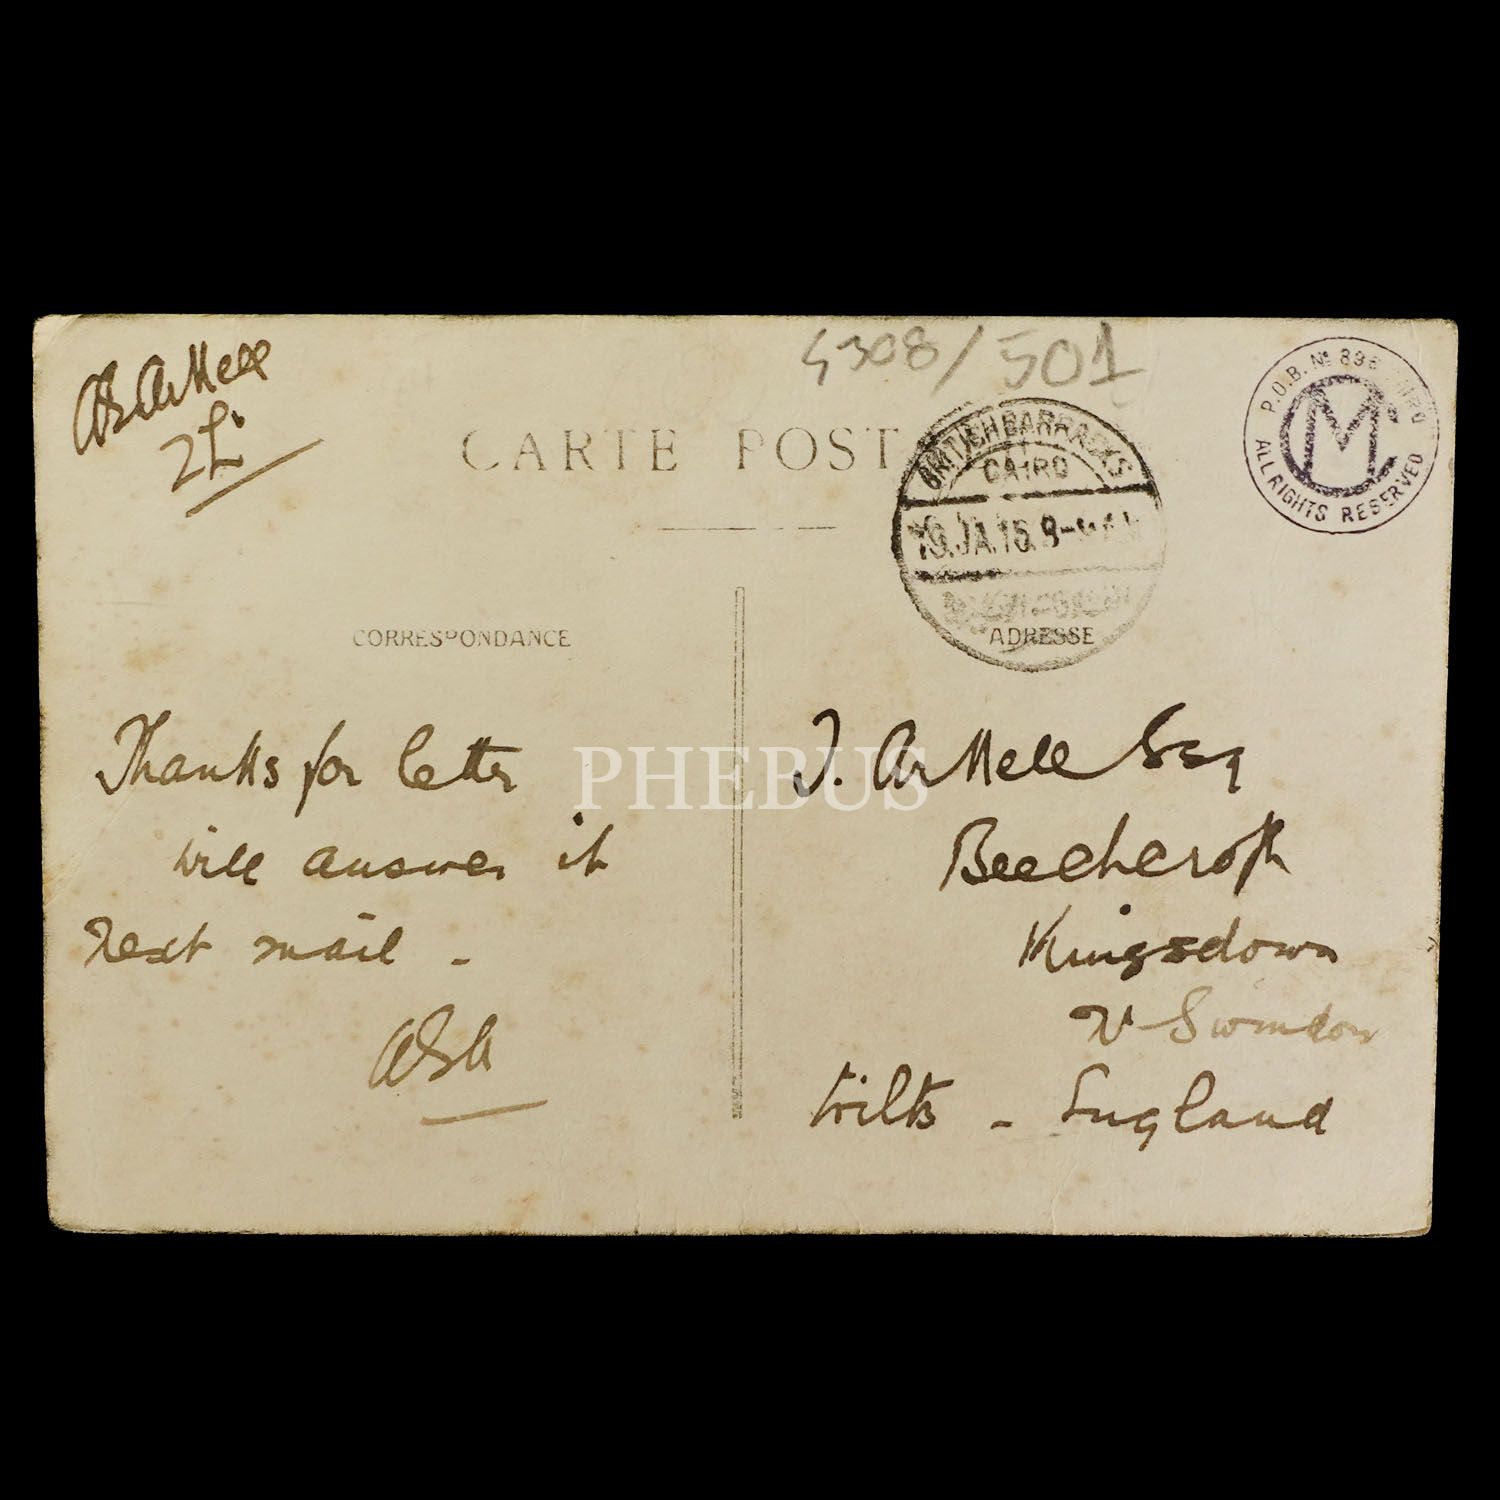 ASArkell
2Lt
4308/501
CARTE POST
BRITISH BARRACKS
CAIRO
19.JA.15.8-9 AM
P.O.B. Nº 895 CAIRO
MC
ALL RIGHTS RESERVED
CORRESPONDANCE
ADRESSE
Thanks for letter
will answer it
next mail -
ASA
PHEBUS
T. Arkell Esq
Beechcroft
Kingsdown
Nr Swindon
Wilts - England